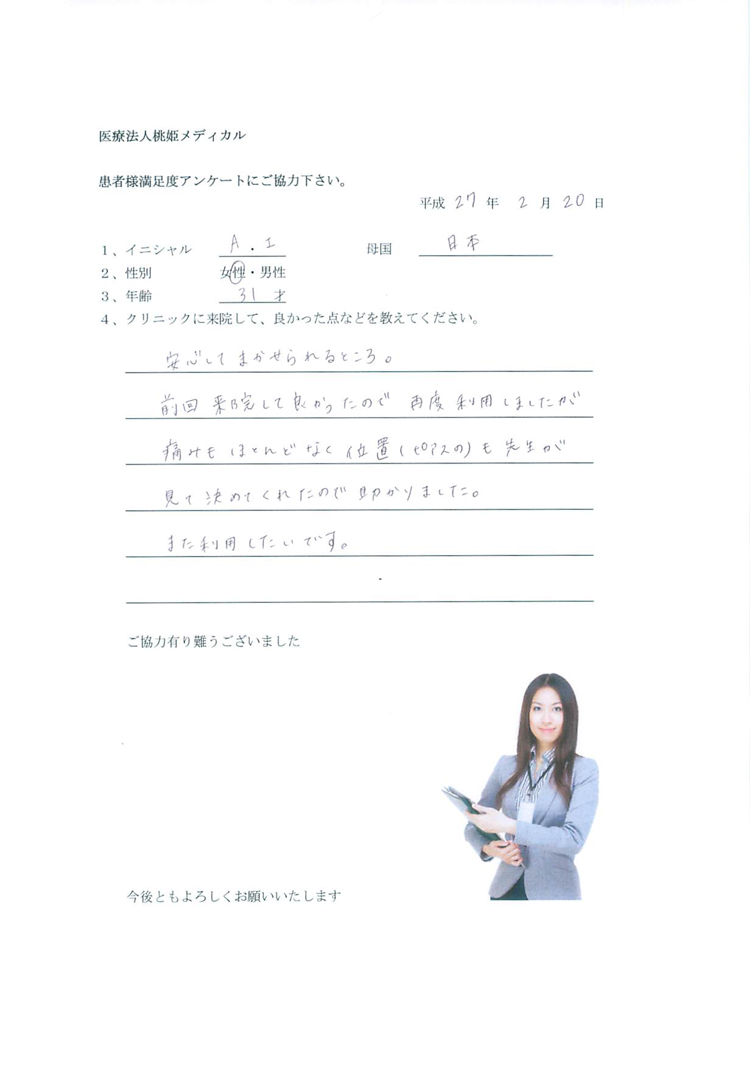 医療法人桃姫メディカル
患者様満足度アンケートにご協力下さい。
平成 27 年 2 月 20 日
1、イニシャル A . I 母国 日本
2、性別 女性・男性
3、年齢 31 才
4、クリニックに来院して、良かった点などを教えてください。
安心してまかせられるところ。
前回来院して良かったので 再度利用しましたが
痛みもほとんどなく位置(ピアスの)も先生が
見て決めてくれたので助かりました。
また利用したいです。
ご協力有り難うございました
今後ともよろしくお願いいたします